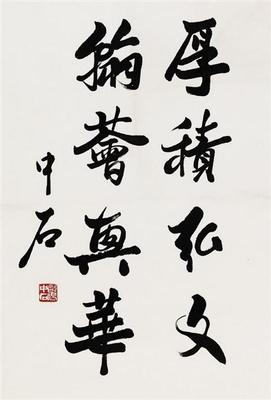 厚積弘文
翰薈典華
中石